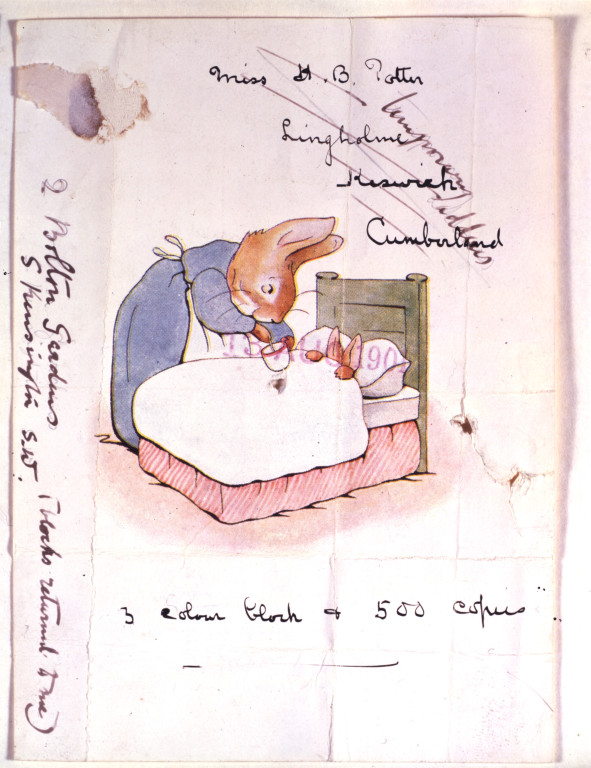 Miss H. B. Potter
Lingholme
Keswick
Cumberland
temporary address
13 AUG 190
3 colour block & 500 copies
2 Bolton Gardens
S Kensington S.W.
(blocks returned to me)